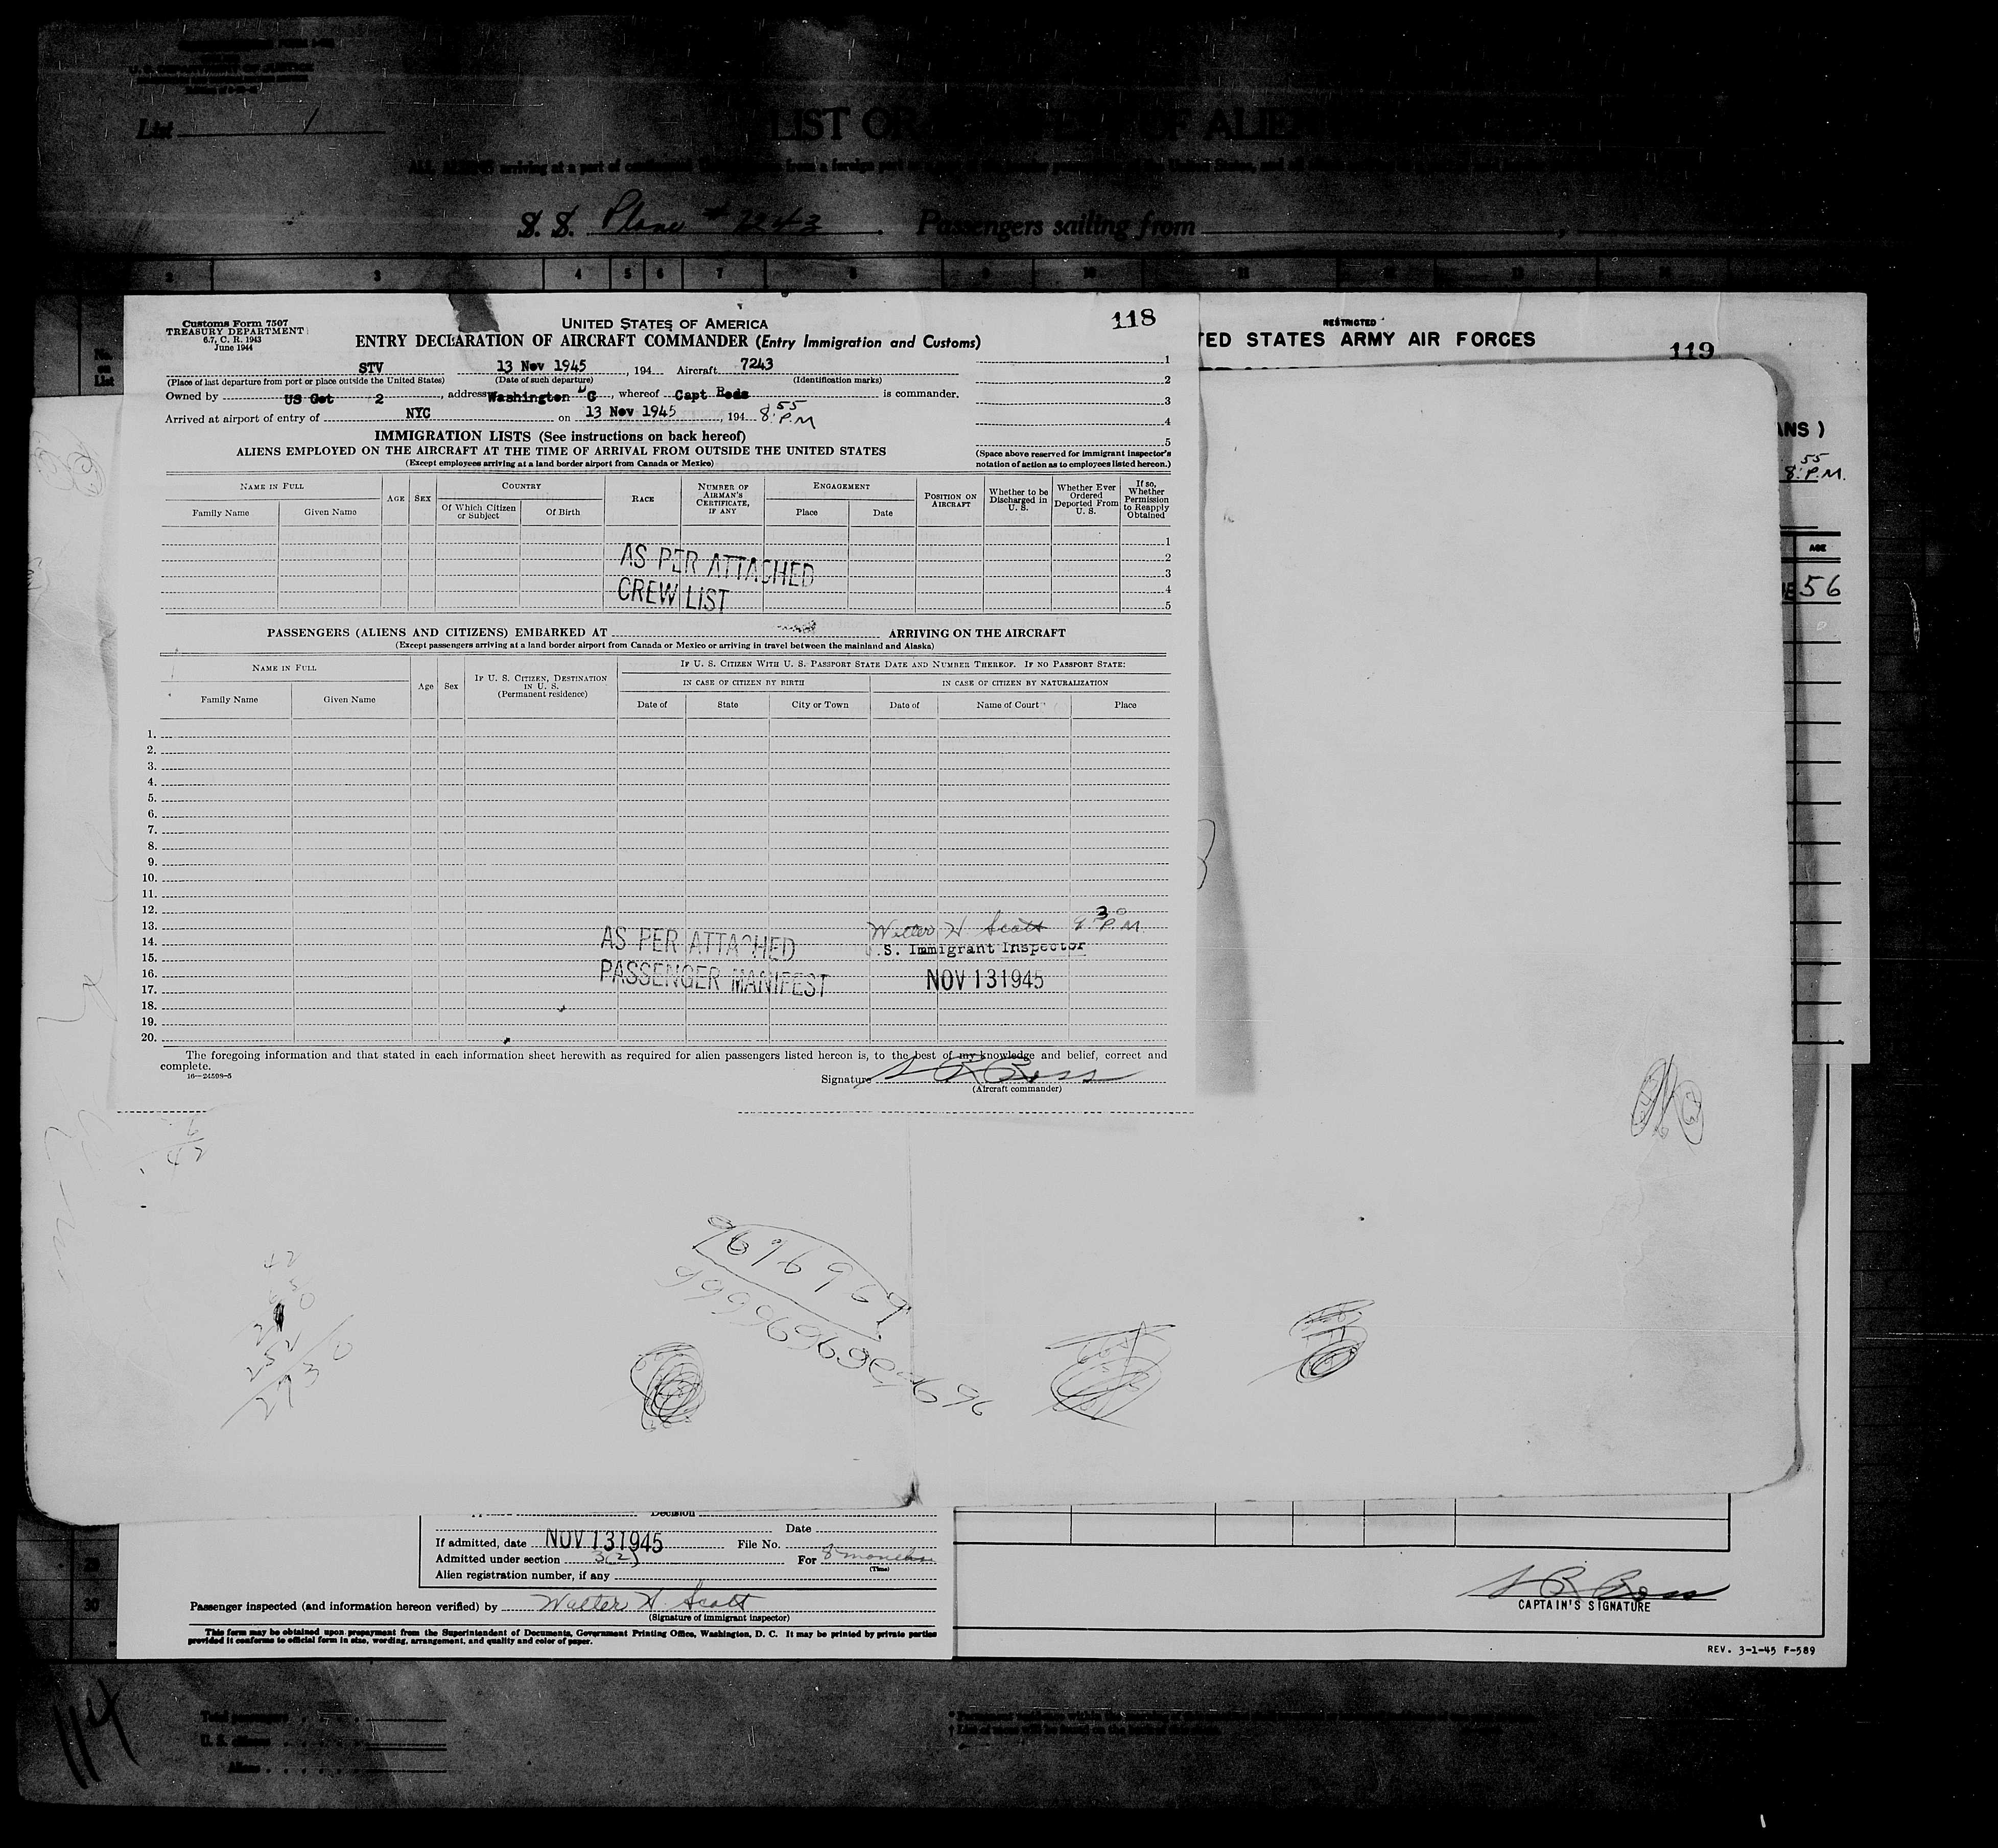 U. S. DEPARTMENT OF JUSTICE
List 1
LIST OR OF ALIEN
S. S. Plane # 7243 Passengers sailing from
2 3 4 5 6 7 8 9 10 11 12 13 14
No. on List
Customs Form 7507
TREASURY DEPARTMENT
6.7, C. R. 1943
June 1944
UNITED STATES OF AMERICA
118
ENTRY DECLARATION OF AIRCRAFT COMMANDER (Entry Immigration and Customs)
STV 13 Nov 1945, 194 Aircraft 7243
(Place of last departure from port or place outside the United States) (Date of such departure) (Identification marks)
Owned by US Got 2, address Washington DC, whereof Capt is commander.
Arrived at airport of entry of NYC on 13 Nov 1945, 194 8:55 P.M
1
2
3
4
5
(Space above reserved for immigrant inspector's notation of action as to employees listed hereon.)
IMMIGRATION LISTS (See instructions on back hereof)
ALIENS EMPLOYED ON THE AIRCRAFT AT THE TIME OF ARRIVAL FROM OUTSIDE THE UNITED STATES
(Except employees arriving at a land border airport from Canada or Mexico)
NAME IN FULL
Family Name Given Name
AGE SEX
COUNTRY
Of Which Citizen or Subject Of Birth
RACE
NUMBER OF AIRMAN'S CERTIFICATE, IF ANY
ENGAGEMENT
Place Date
POSITION ON AIRCRAFT
Whether to be Discharged in U. S.
Whether Ever Ordered Deported From U. S.
If so, Whether Permission to Reapply Obtained
1
2
3
4
5
AS PER ATTACHED
CREW LIST
PASSENGERS (ALIENS AND CITIZENS) EMBARKED AT ARRIVING ON THE AIRCRAFT
(Except passengers arriving at a land border airport from Canada or Mexico or arriving in travel between the mainland and Alaska)
NAME IN FULL
Family Name Given Name
Age Sex
IF U. S. CITIZEN, DESTINATION IN U. S.
(Permanent residence)
IF U. S. CITIZEN WITH U. S. PASSPORT STATE DATE AND NUMBER THEREOF. IF NO PASSPORT STATE:
IN CASE OF CITIZEN BY BIRTH IN CASE OF CITIZEN BY NATURALIZATION
Date of State City or Town Date of Name of Court Place
1.
2.
3.
4.
5.
6.
7.
8.
9.
10.
11.
12.
13.
14.
15.
16.
17.
18.
19.
20.
AS PER ATTACHED
PASSENGER MANIFEST
Walter H. Scott 9:30 P.M.
S. Immigrant Inspector
NOV 13 1945
The foregoing information and that stated in each information sheet herewith as required for alien passengers listed hereon is, to the best of my knowledge and belief, correct and
complete.
16—24598-5
Signature
(Aircraft commander)
RESTRICTED
TED STATES ARMY AIR FORCES
119
ANS )
8:55 P.M.
AGE
56
9696969
Decision
Date
If admitted, date NOV 13 1945 File No.
Admitted under section 3(2) For 8 months
(Time)
Alien registration number, if any
Passenger inspected (and information hereon verified) by Walter H. Scott
(Signature of immigrant inspector)
This form may be obtained upon prepayment from the Superintendent of Documents, Government Printing Office, Washington, D. C. It may be printed by private parties
provided it conforms to official form in size, wording, arrangement, and quality and color of paper.
CAPTAIN'S SIGNATURE
REV. 3-1-45 F-589
30
114
Total passengers
U. S. citizens
Aliens